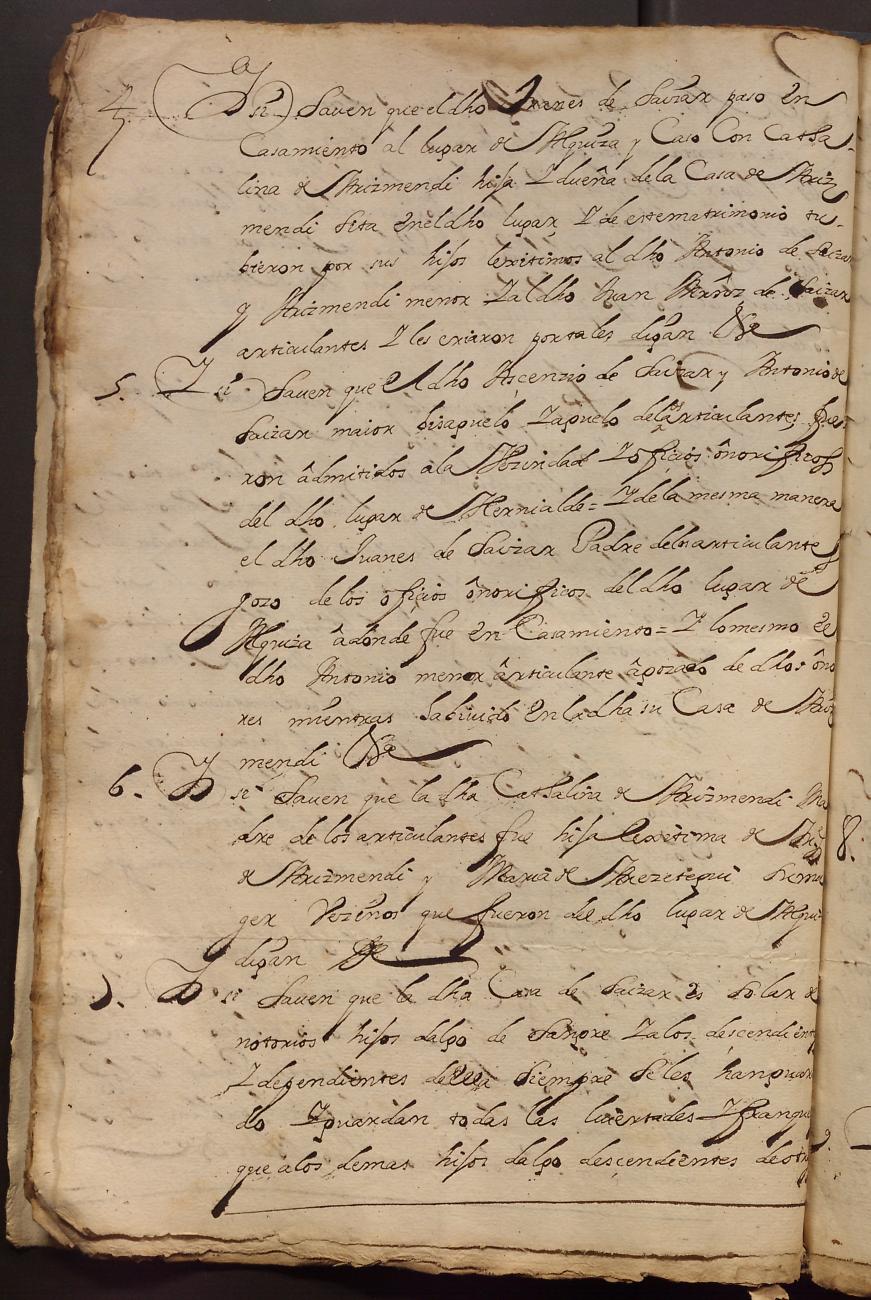 4. Y si Saven que el dho Juanes de Saizar paso en
Casamiento al lugar de Alquiza y Caso Con Catha-
lina de Arizmendi hija Y dueña de la Casa de Ariz
mendi sita en el dho lugar, Y de este matrimonio tu-
bieron por sus hijos lexitimos al dho Antonio de Saizar
y Arizmendi menor Y al dho Juan de Saizar
articulantes Y les criaron por tales digan &a
5. Y si Saven que el dho Ascenzio de Saizar y Antonio de
Saizar maior bisaguelo Y aguelo de los articulantes fue
ron admitidos a la Vezindad Y oficios onorificos
del dho lugar de Hernialde = Y de la mesma manera
el dho Juanes de Saizar Padre de los articulantes
gozo de los oficios onorificos del dho lugar de
Alquiza adonde fue en Casamiento = Y lo mesmo el
dho Antonio menor articulante a gozado de dhos ono
res mientras ha bivido en la dha su Casa de Ariz
mendi &a
6. Y si Saven que la dha Cathalina de Arizmendi Ma
dre de los articulantes fue hija lexitima de
de Arizmendi y Maria de Arezetegui su mu
ger Vezinos que fueron del dho lugar de Alqui
digan &a
7. Y si Saven que la dha Casa de Saizar es Solar de
notorios hijos dalgo de Sangre Y a los descendient
Y dependientes de ella Siempre se les han guar
do Y guardan todas las livertades Y franque
que a los demas hijos dalgo descendientes de otr
8.
9.